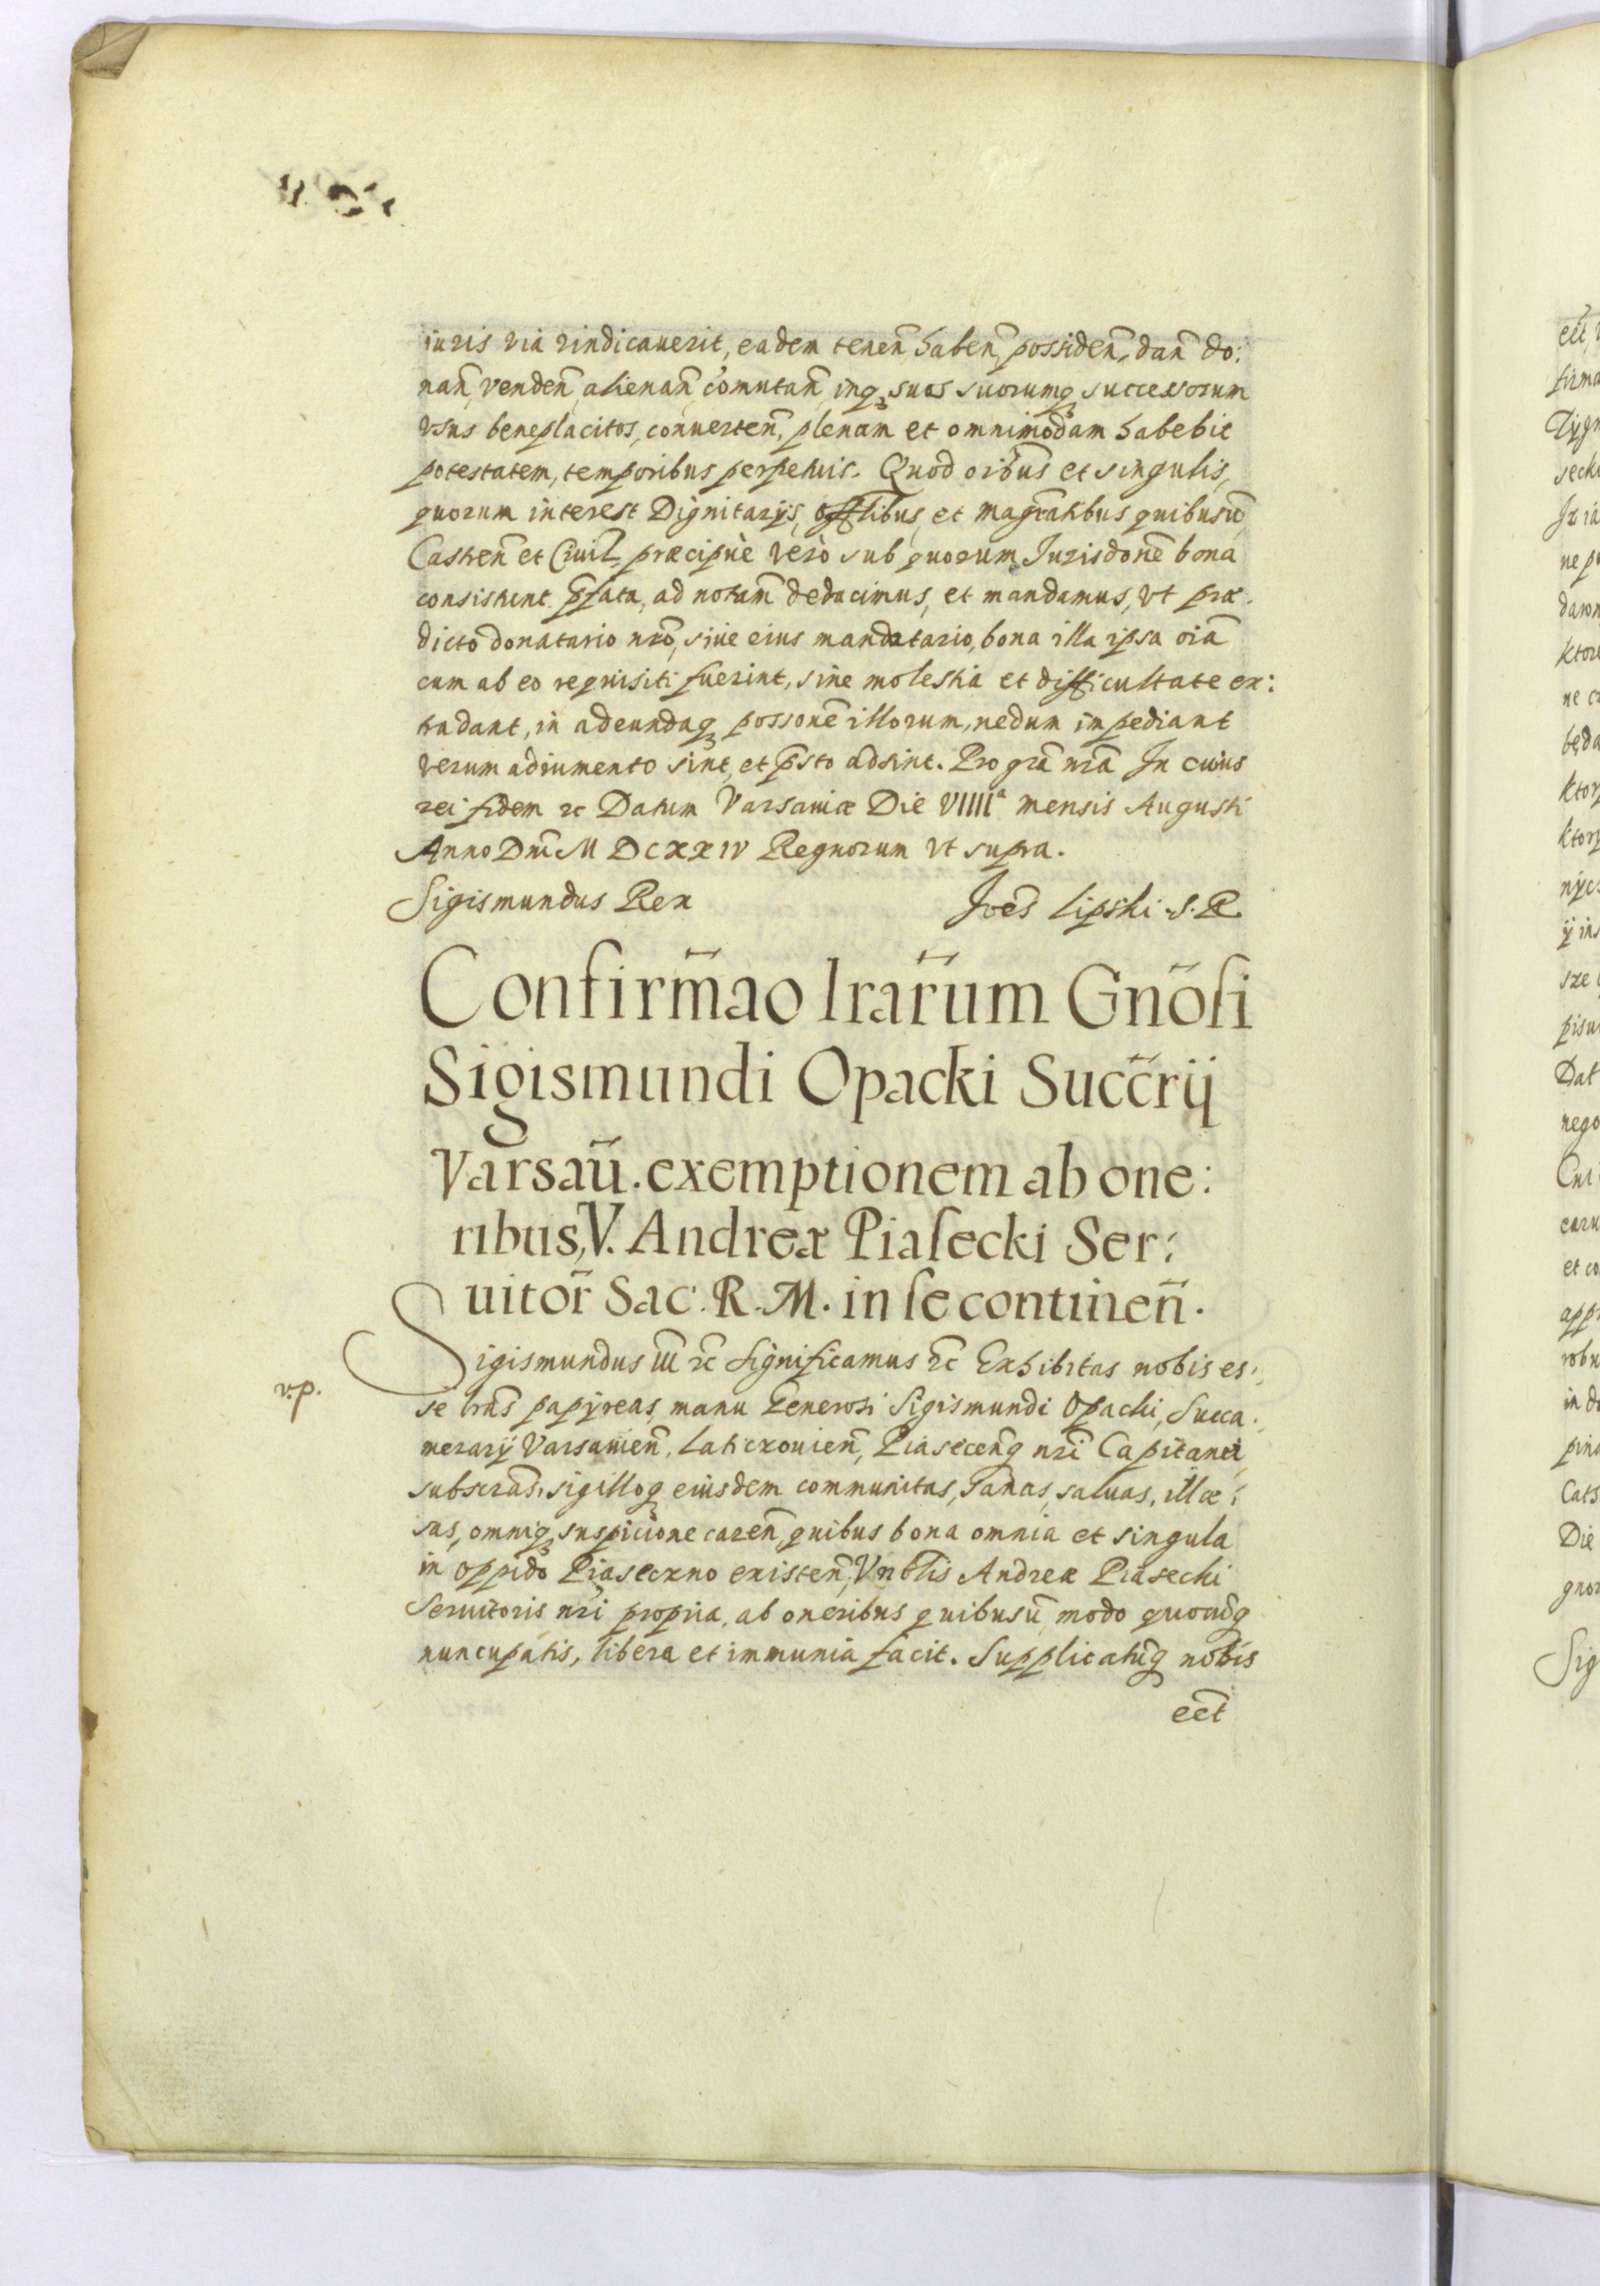 iuris via vindicauerit, eadem tenen̄ haben̄, possiden̄, dan̄ do:
nan̄, venden̄, alienan̄, com̄utan̄, inq₃ suos suorumq₃ successorum
vsus beneplacitos, conuerten̄, plenam et omnimodam habebit
potestatem, temporibus perpetuis. Quod oibus et singulis,
quorum interest Dignitarijs, offlibus, et magr̄atibus quibusuis
Castren̄ et Ciuil, præcipuè verò sub quorum Jurisdone bona
consistunt p̄fata, ad notam deducimus, et mandamus, vt præ.
dicto donatario nr̄o, siue eius mandatario, bona illa ipsa oīa
cum ab eo requisiti fuerint, sine molestia et difficultate ex:
tradant, in adeundaq₃ possonē illorum, nedum impediant
verum adiumento sint, et p̄sto adsint. Pro grā nrā Jn cuius
rei fidem ꝛc Datum Varsauiæ Die VIIIIᵃ mensis Augusti
Anno Dn̄i M DCXXIV Regnorum vt supra.
Sigismundus Rex Joēs Lipski S. R
Confirm̄ao lrar̄um Gn̄osi
Sigismundi Opacki Succ̄rij
Varsau̅. exemptionem ab one:
ribus, V. Andreæ Piasecki Ser:
uitor̄ Sac. R. M. in se continen̄.
Sigismundus III ꝛc Significamus ꝛc Exhibitas nobis es:
v.p.
se lrās papijreas, manu Generosi Sigismundi Opacki, Succa.
merarij Varsauien̄, Laticzouien̄, Piasecen̄q nr̄i Capitanei
subscrās, sigilloq₃ eiusdem communitas, sanas, saluas, illæ:
sas, omniq₃ suspicione caren̄, quibus bona omnia et singula
in oppido Piaseczno existen̄, Vn̄blis Andreæ Piasecki
Seruitoris nr̄i propria, ab oneribus quibusuis modo quocūq
nuncupatis, libera et immunia facit. Supplicatūq nobis
eēt